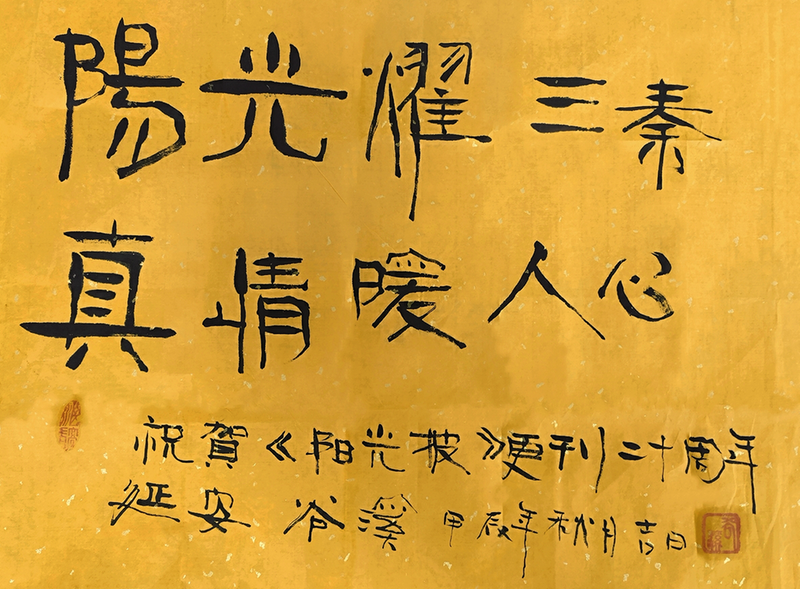 陽光耀三秦
真情暖人心
祝賀《阳光报》更刊二十周年
延安 谷溪 甲辰年秋月吉日